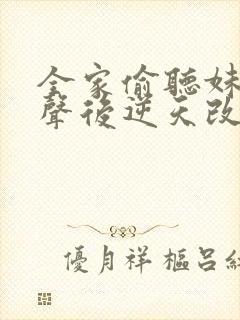 全家偷聽妹
聲後逆天改
優月祥 樞呂紅